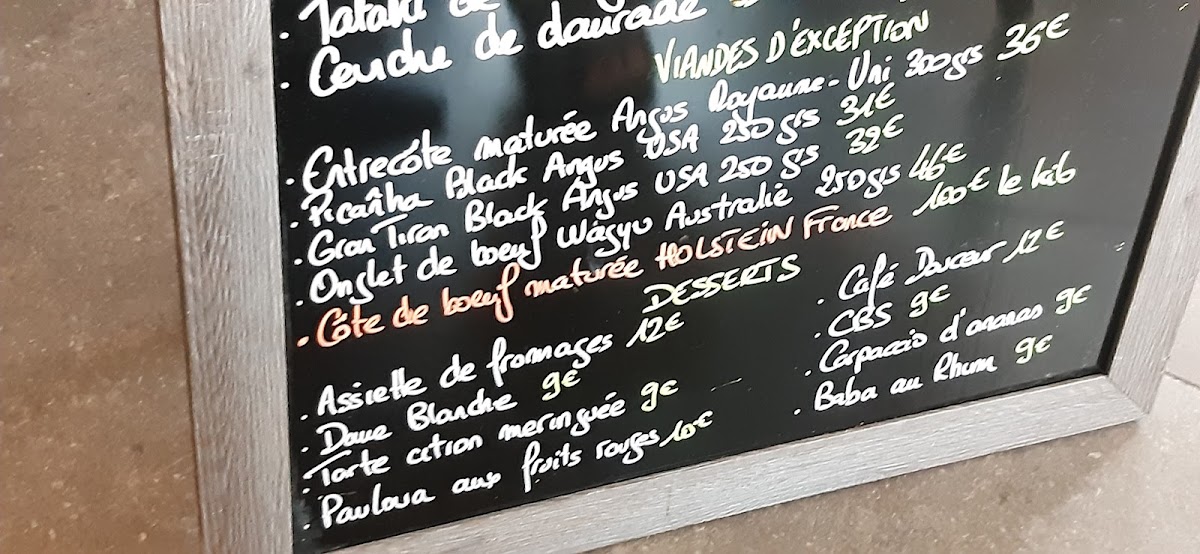 . Tataki de
. Ceviche de daurade
VIANDES D'EXCEPTION
. Entrecôte maturée Angus Royaume-Uni 300grs 36€
. Picanha Black Angus USA 250 grs 31€
. Gran Tiran Black Angus USA 250 grs 32€
. Onglet de boeuf Wagyu Australie 250grs 46€
. Côte de boeuf maturée HOLSTEIN France 100€ le kilo
DESSERTS
. Assiette de fromages 12€
. Dame Blanche 9€
. Tarte citron meringuée 9€
. Pavlova aux fruits rouges 10€
. Café Douceur 12€
. CBS 9€
. Carpaccio d'ananas 9€
. Baba au Rhum 9€